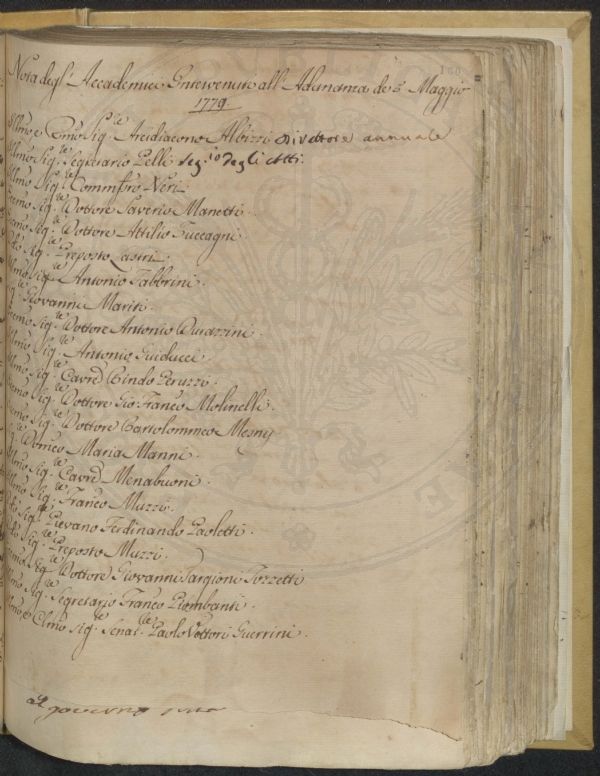 Nota degl' Accademici Intervenuti all' Adunanza de' 5 Maggio
1779
Sig.re Arcidiacono Albizzi Direttore annuale
Sig.re Segretario Pelli Seg.rio degli Atti
Sig.re Neri
Sig.re Dottore Saverio Manetti
Sig.re Dottore Attilio Zuccagni
Sig.re Preposto Lastri
Sig.re Antonio Fabbrini
Giovanni Mariti
Sig.re Dottore Antonio Durazzini
Sig.re Antonio Guiducci
Sig.re Cavre Bindo Peruzzi
Sig.re Dottore Gio. Franco Molinelli
Sig.re Dottore Bartolommeo Mesny
Domco Maria Manni
Sig.re Cavre Menabuoni
Sig.re Franco Muzzi
Sig.re Pievano Ferdinando Paoletti
Sig.re Preposto Muzzi
Sig.re Dottore Giovanni Targioni Tozzetti
Sig.re Segretario Franco Piombanti
Sig.re Senat.re Paolo Vettori Guerrini